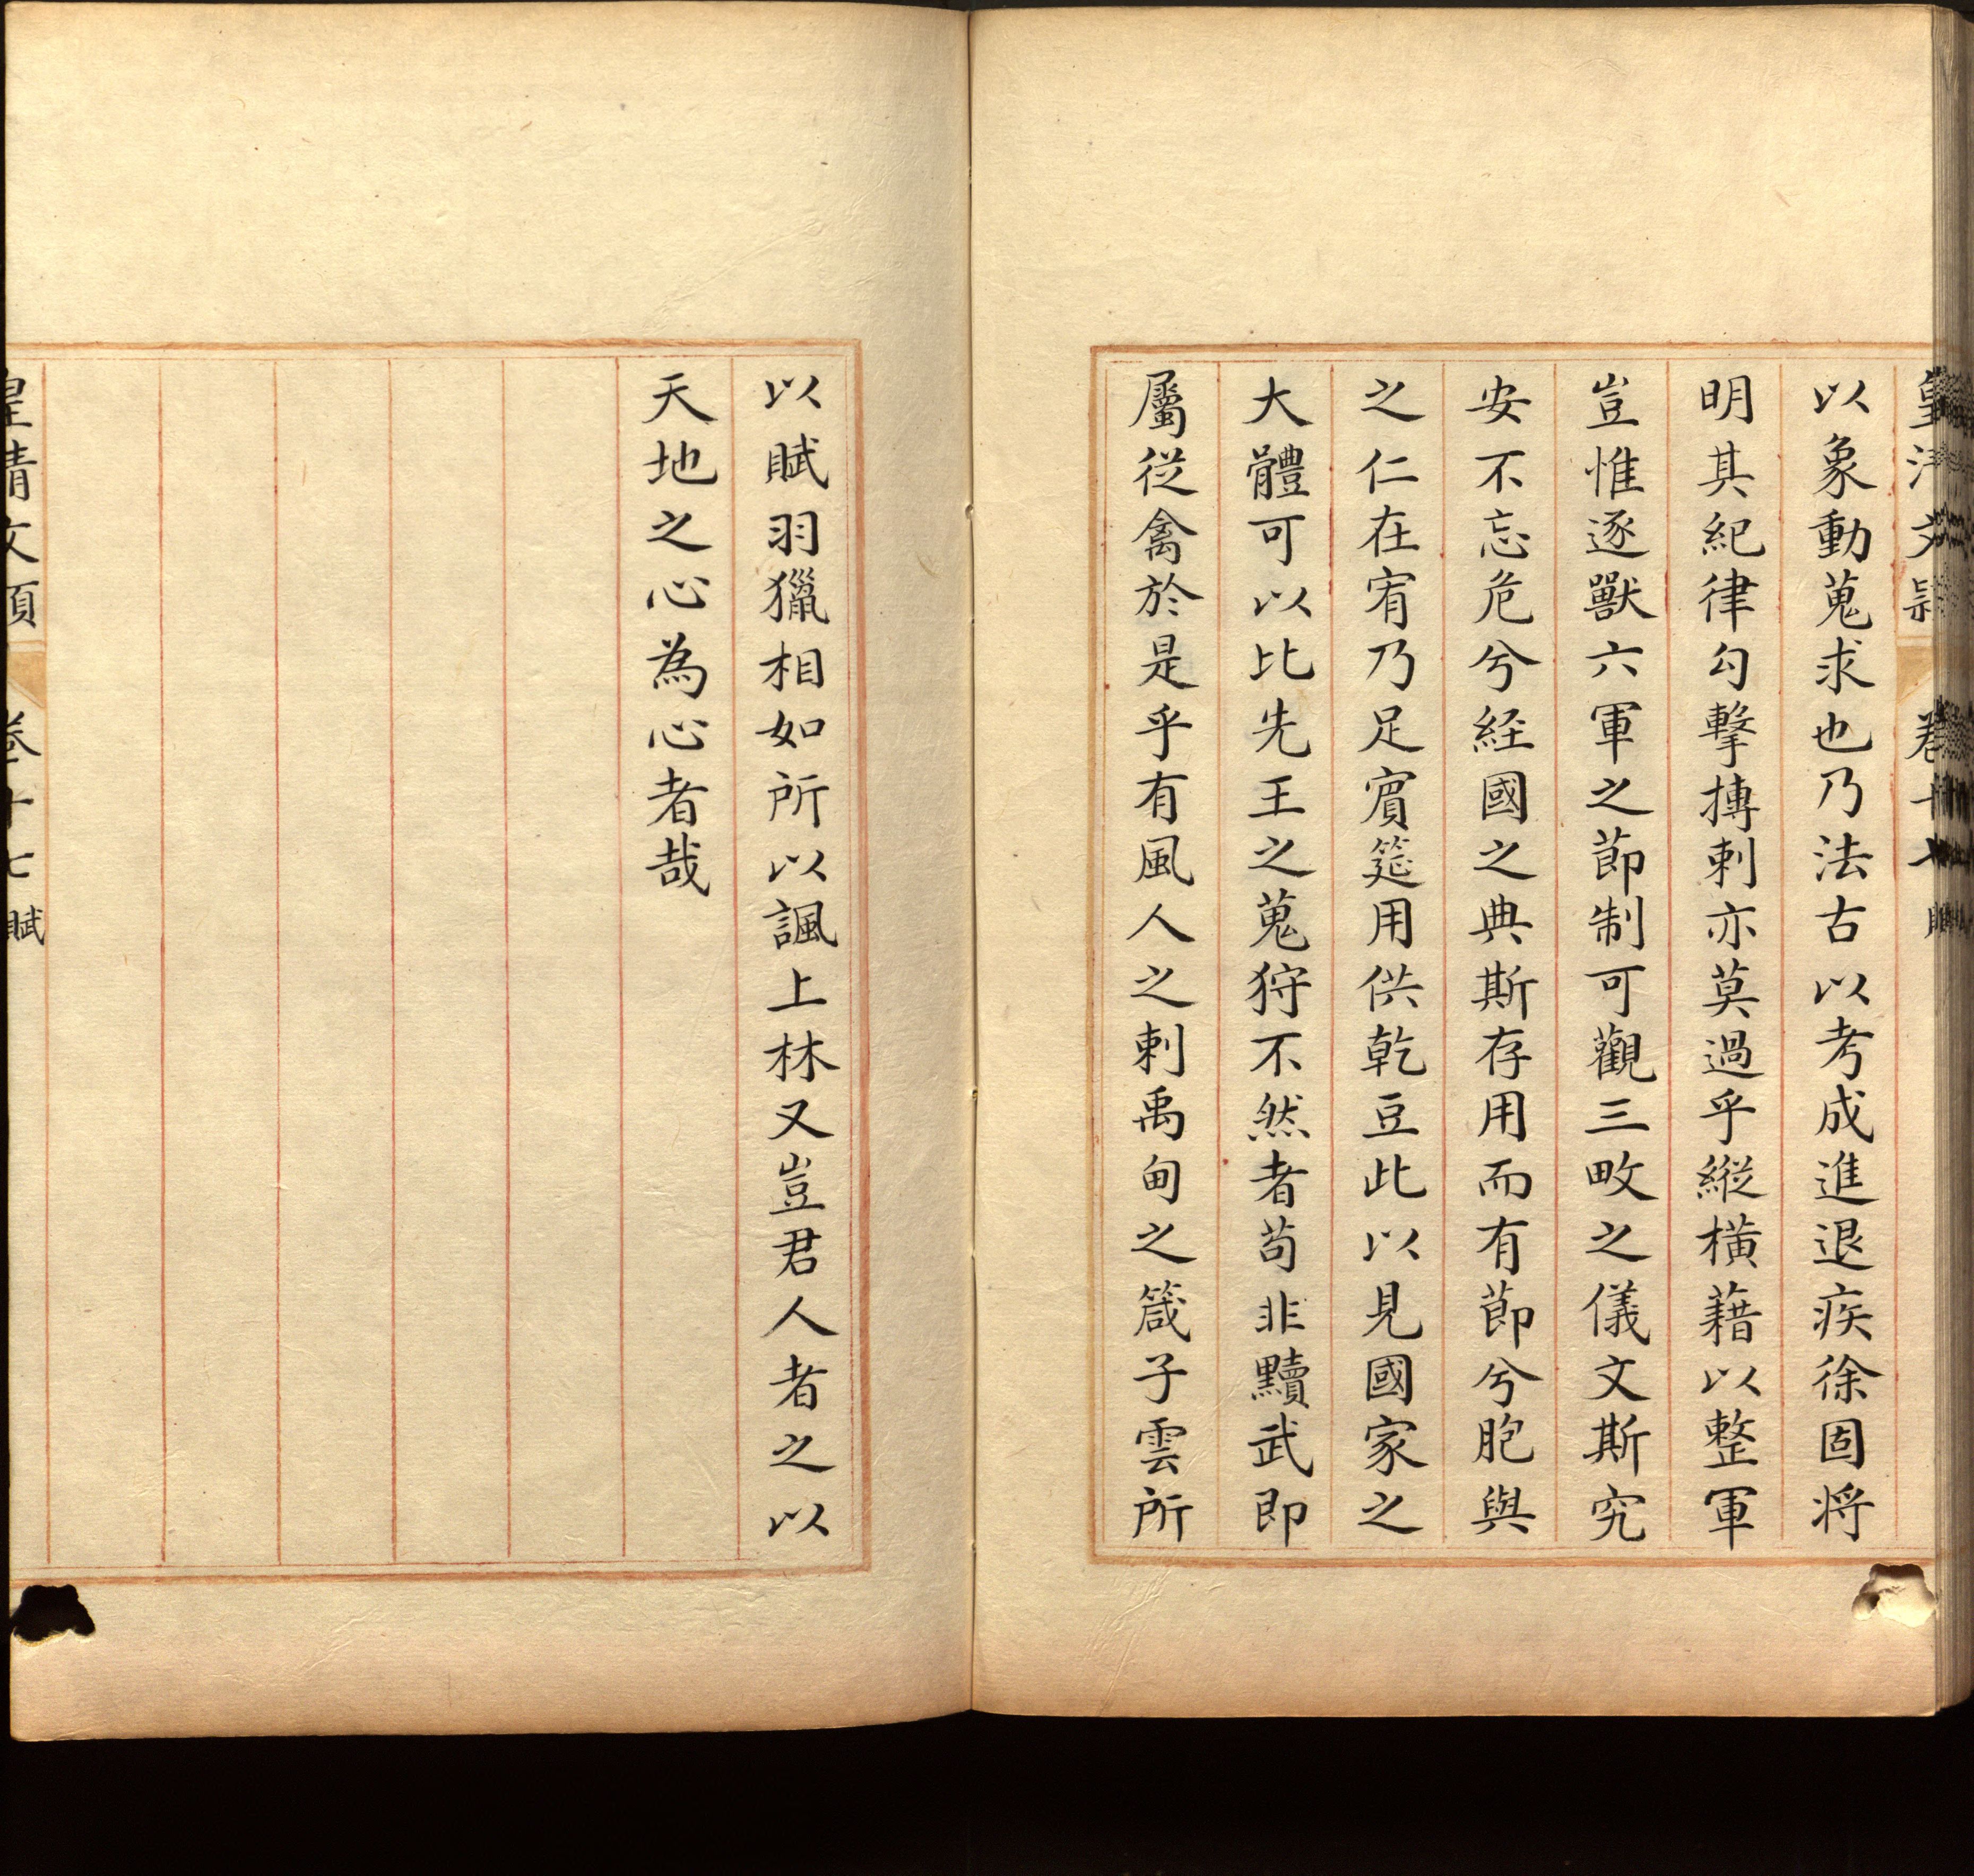 皇清文穎 卷十七 賦
以象動蒐求也乃法古以考成進退疾徐固將
明其紀律勾擊摶刺亦莫過乎縱橫藉以整軍
豈惟逐獸六軍之節制可觀三畋之儀文斯究
安不忘危兮經國之典斯存用而有節兮胞與
之仁在宥乃足賔筵用供乾豆此以見國家之
大體可以比先王之蒐狩不然者苟非黷武即
屬從禽於是乎有風人之刺禹甸之箴子雲所
以賦羽獵相如所以諷上林又豈君人者之以
天地之心為心者哉
皇清文穎 卷十七 賦